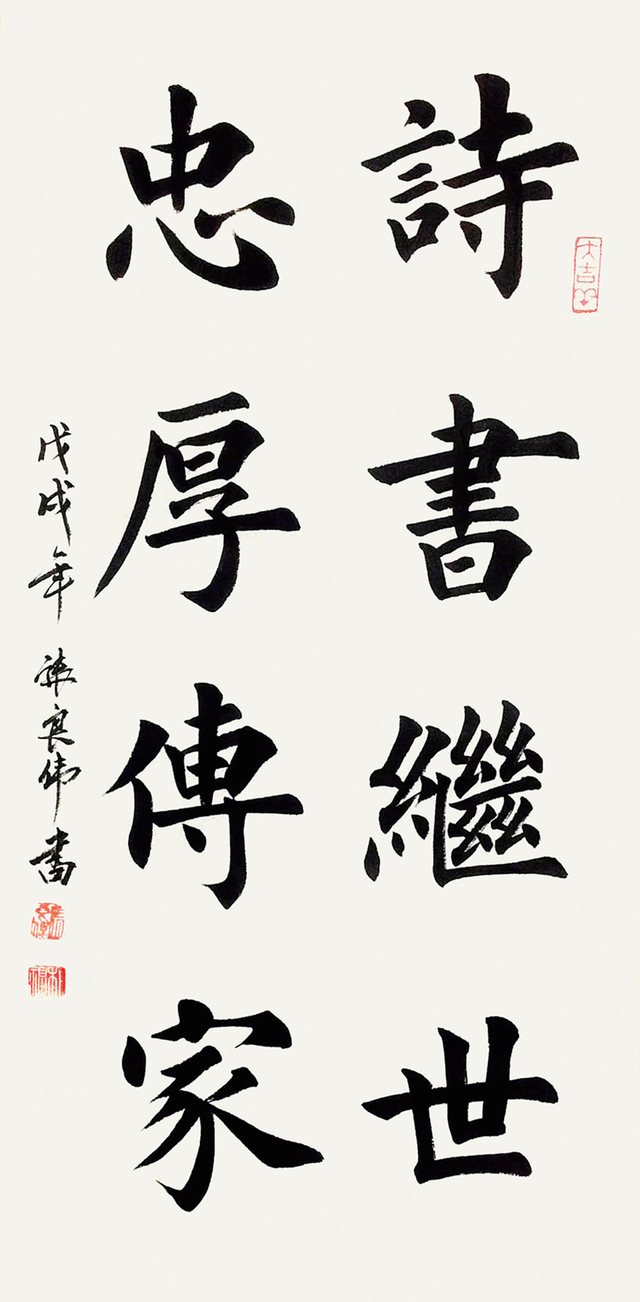 詩書繼世
忠厚傳家
戊戌年 良伟書
大吉